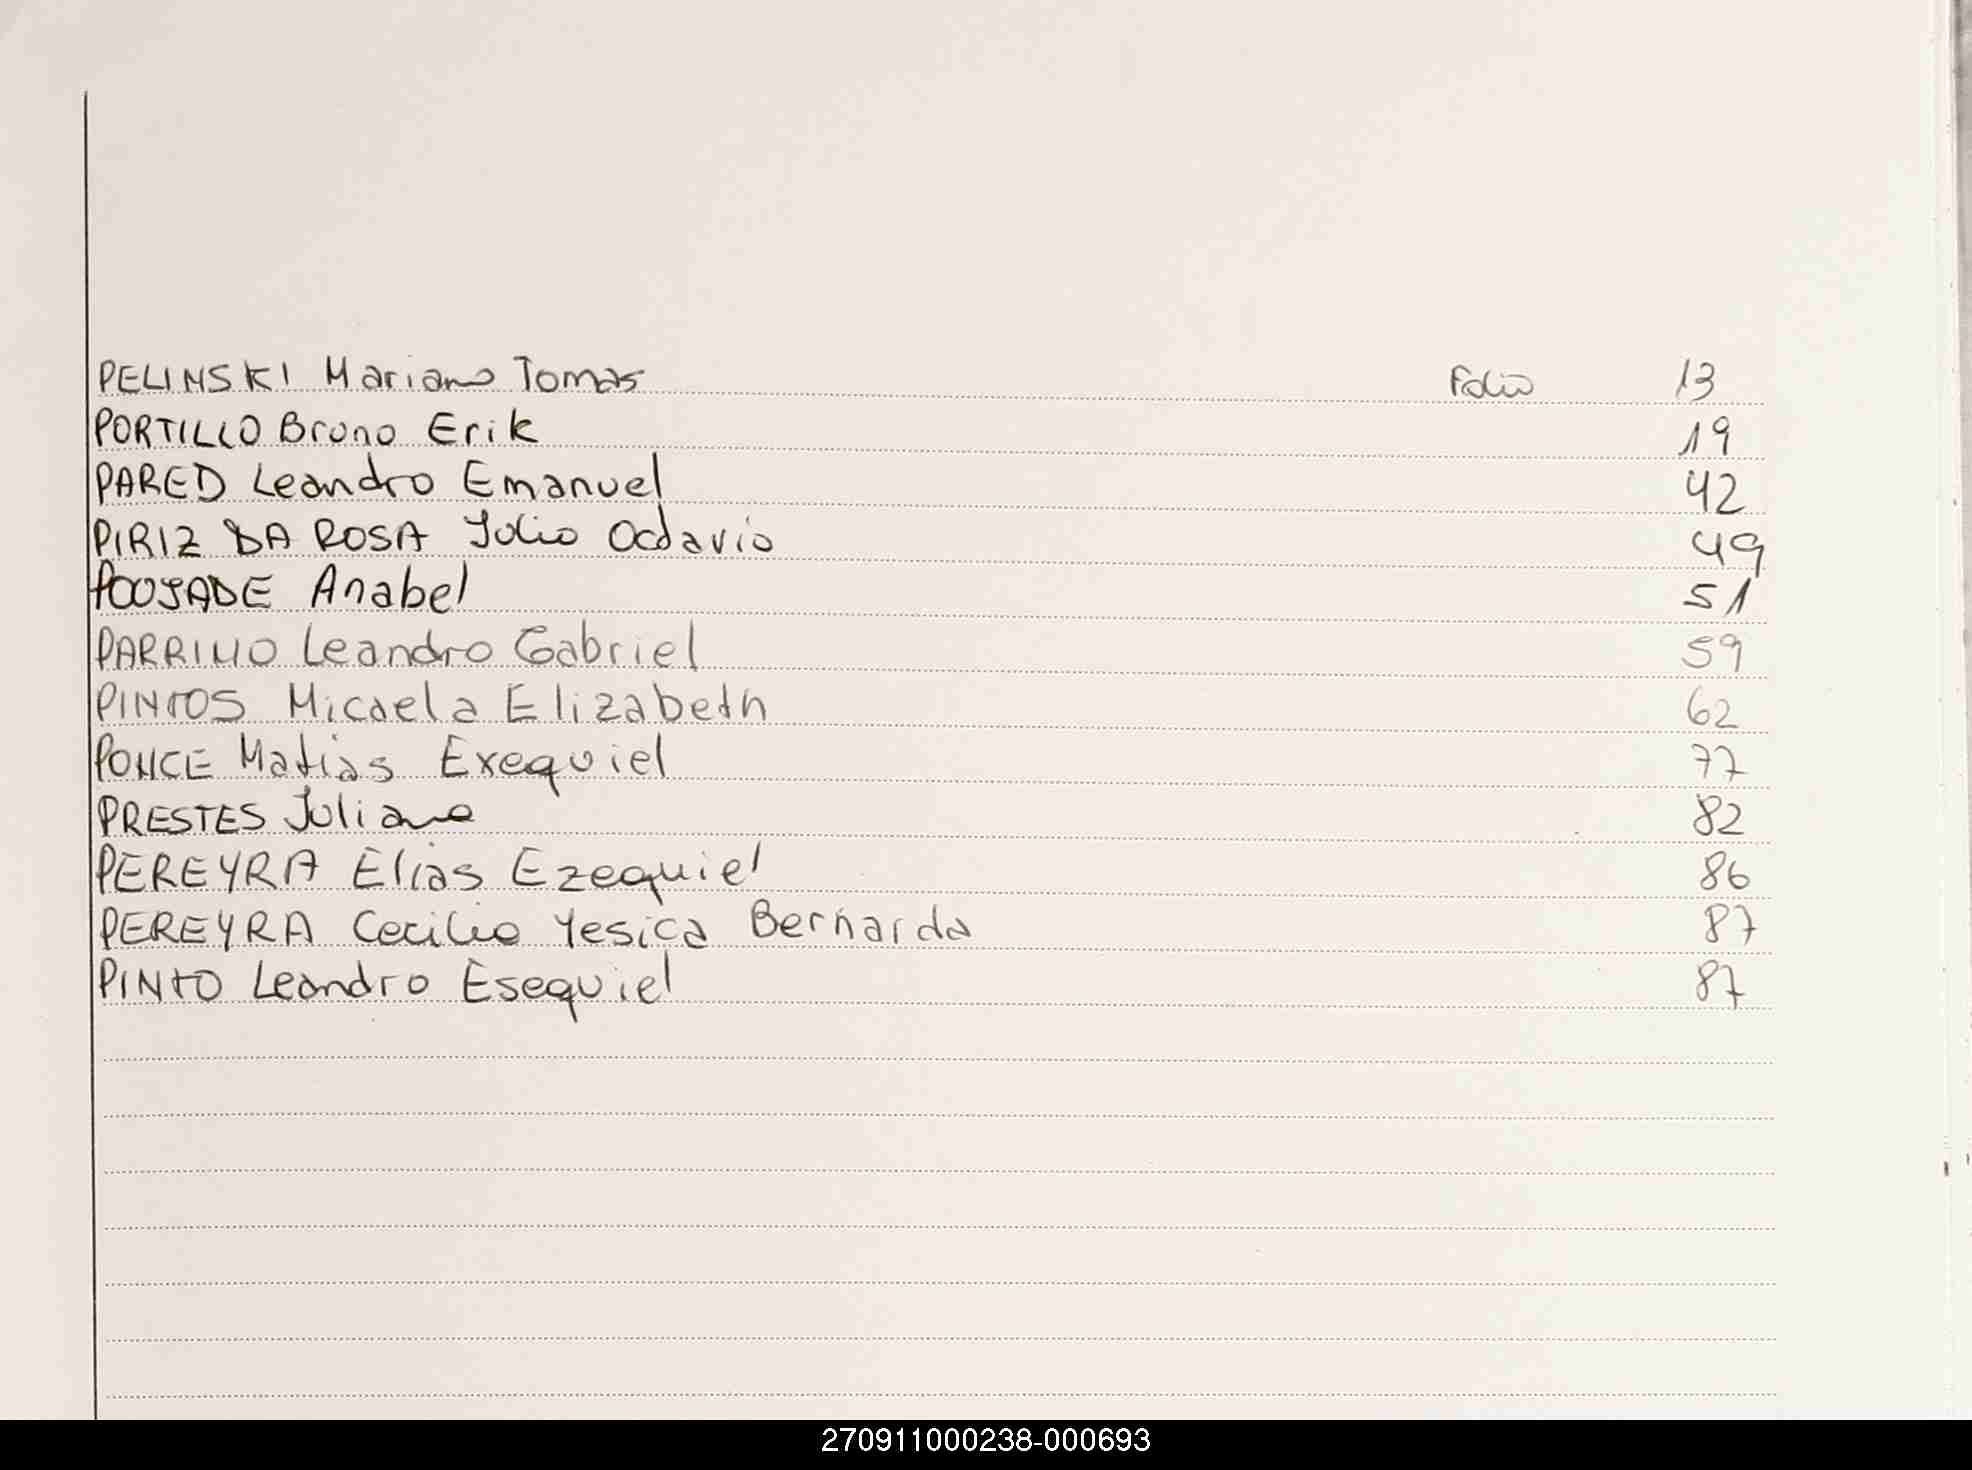 PELINSKI Mariano Tomas Folio 13
PORTILLO Bruno Erik 19
PARED Leandro Emanuel 42
PIRIZ DA ROSA Julio Octavio 49
POUJADE Anabel 51
PARRINO Leandro Gabriel 59
PINTOS Micaela Elizabeth 62
PONCE Matias Exequiel 77
PRESTES Juliana 82
PEREYRA Elias Ezequiel 86
PEREYRA Cecilia Yesica Bernarda 87
PINTO Leandro Esequiel 87
270911000238-000693